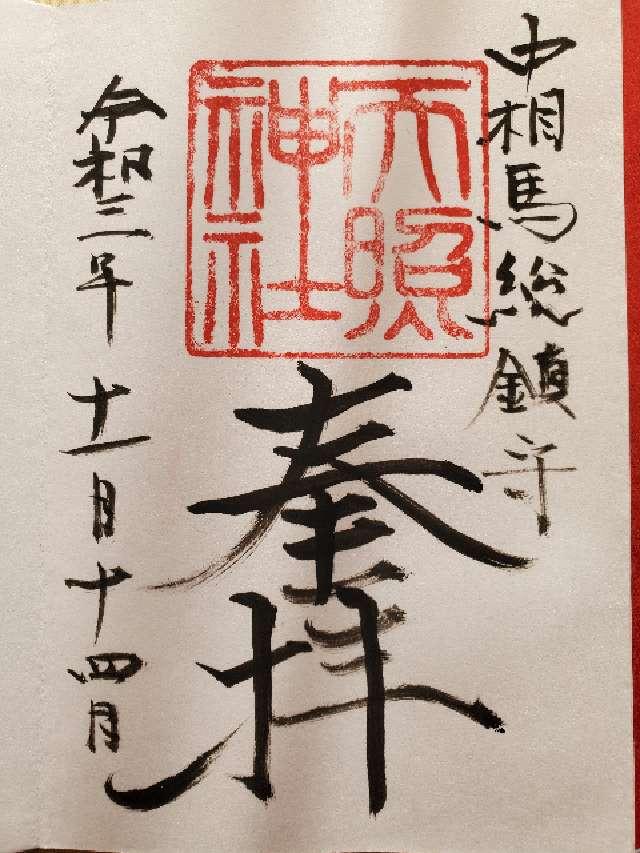 中相馬総鎮守
天照
神社
奉拝
令和三年十一月十四日